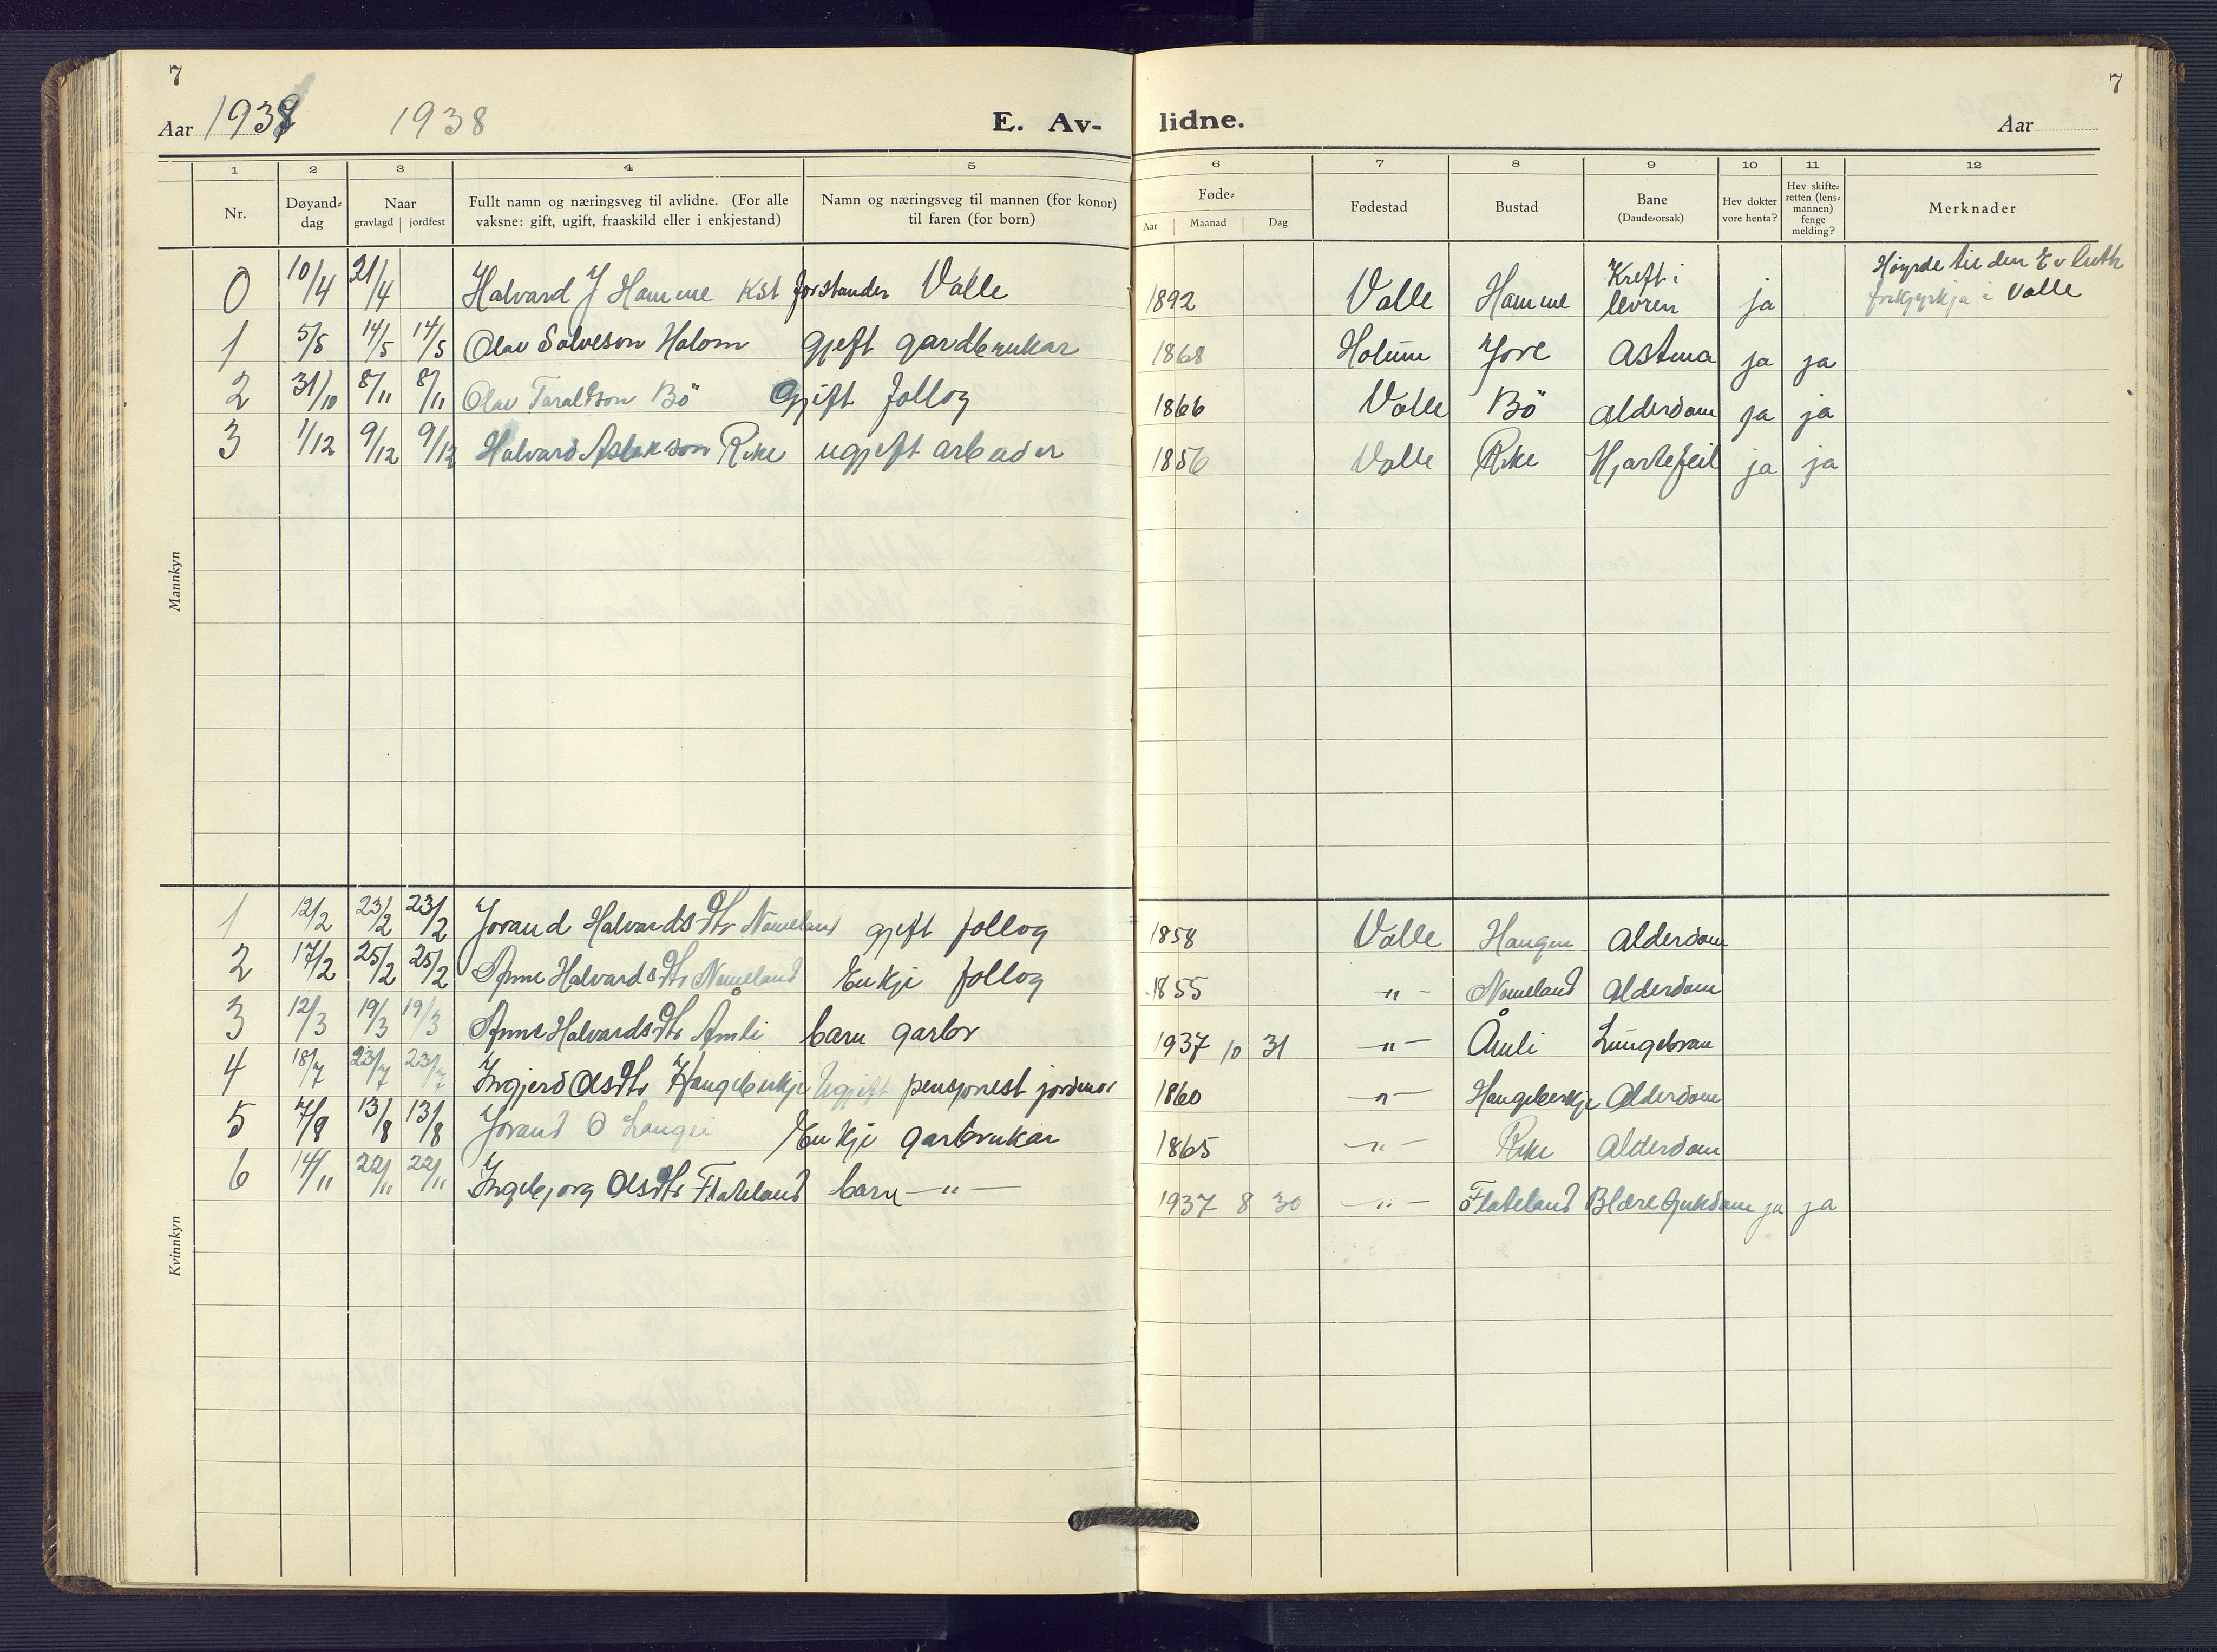 7
7
Aar 1938 1938 E. Av- lidne. Aar
1 2 3 4 5 6 7 8 9 10 11 12
Nr. Døyand-dag Naar gravlagd jordfest Fullt namn og næringsveg til avlidne. (For alle vaksne: gift, ugift, fraaskild eller i enkjestand) Namn og næringsveg til mannen (for konor) til faren (for born) Føde- Aar Maanad Dag Fødestad Bustad Bane (Daude-orsak) Hev dokter vore henta? Hev skifte-retten (lens-mannen) fenge melding? Merknader
Mannkyn
0 10/4 21/4 Halvard J Homme Kst forstander Valle 1892 Valle Homme Kreft i levren ja Høyrde til den Ev luth frikyrkja i Valle
1 5/5 14/5 14/5 Olav Salveson Holom gjeft gardbrukar 1868 Holum Jore Astma ja ja
2 31/10 8/11 8/11 Olav Taraldson Bö Gjift follog 1866 Valle Bö Alderdom ja ja
3 1/12 9/12 9/12 Halvard Aslakson Rike ugjeft arbeider 1856 Valle Rike Hjartefeil ja ja
Kvinnkyn
1 12/2 23/2 23/2 Jorand Halvardsdtr Nomeland gjift follog 1858 Valle Haugen Alderdom
2 17/2 25/2 25/2 Anne Halvardsdtr Nomeland Enkje follog 1855 -"- Nomeland Alderdom
3 12/3 19/3 19/3 Anne Halvardsdtr Åmli barn garbr 1937 10 31 -"- Åmli Lungebran
4 18/7 23/7 23/7 Ingjerd Olsdtr Haugeberkje Ugjeft pensjonest jordmor 1860 -"- Haugeberkje Alderdom
5 7/8 13/8 13/8 Jorand O Enkje garbrukar 1865 -"- Rike Alderdom
6 14/11 22/11 22/11 Ingebjorg Olsdtr Flateland barn -"- 1937 8 30 -"- Flateland Blæresjukdom ja ja